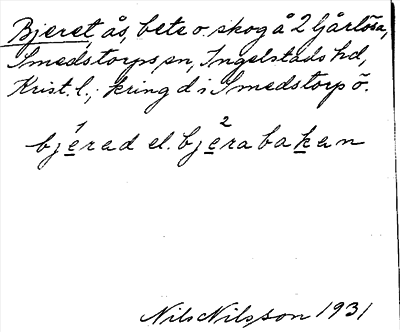 Bjeret, ås, bete o. skog å 2 Gårlösa,
Smedstorps sn, Ingelstads hd,
Krist. l.; kring d i Smedstorp ö.
1 2
bjerad el. bjerabakan
Nils Nilsson 1931